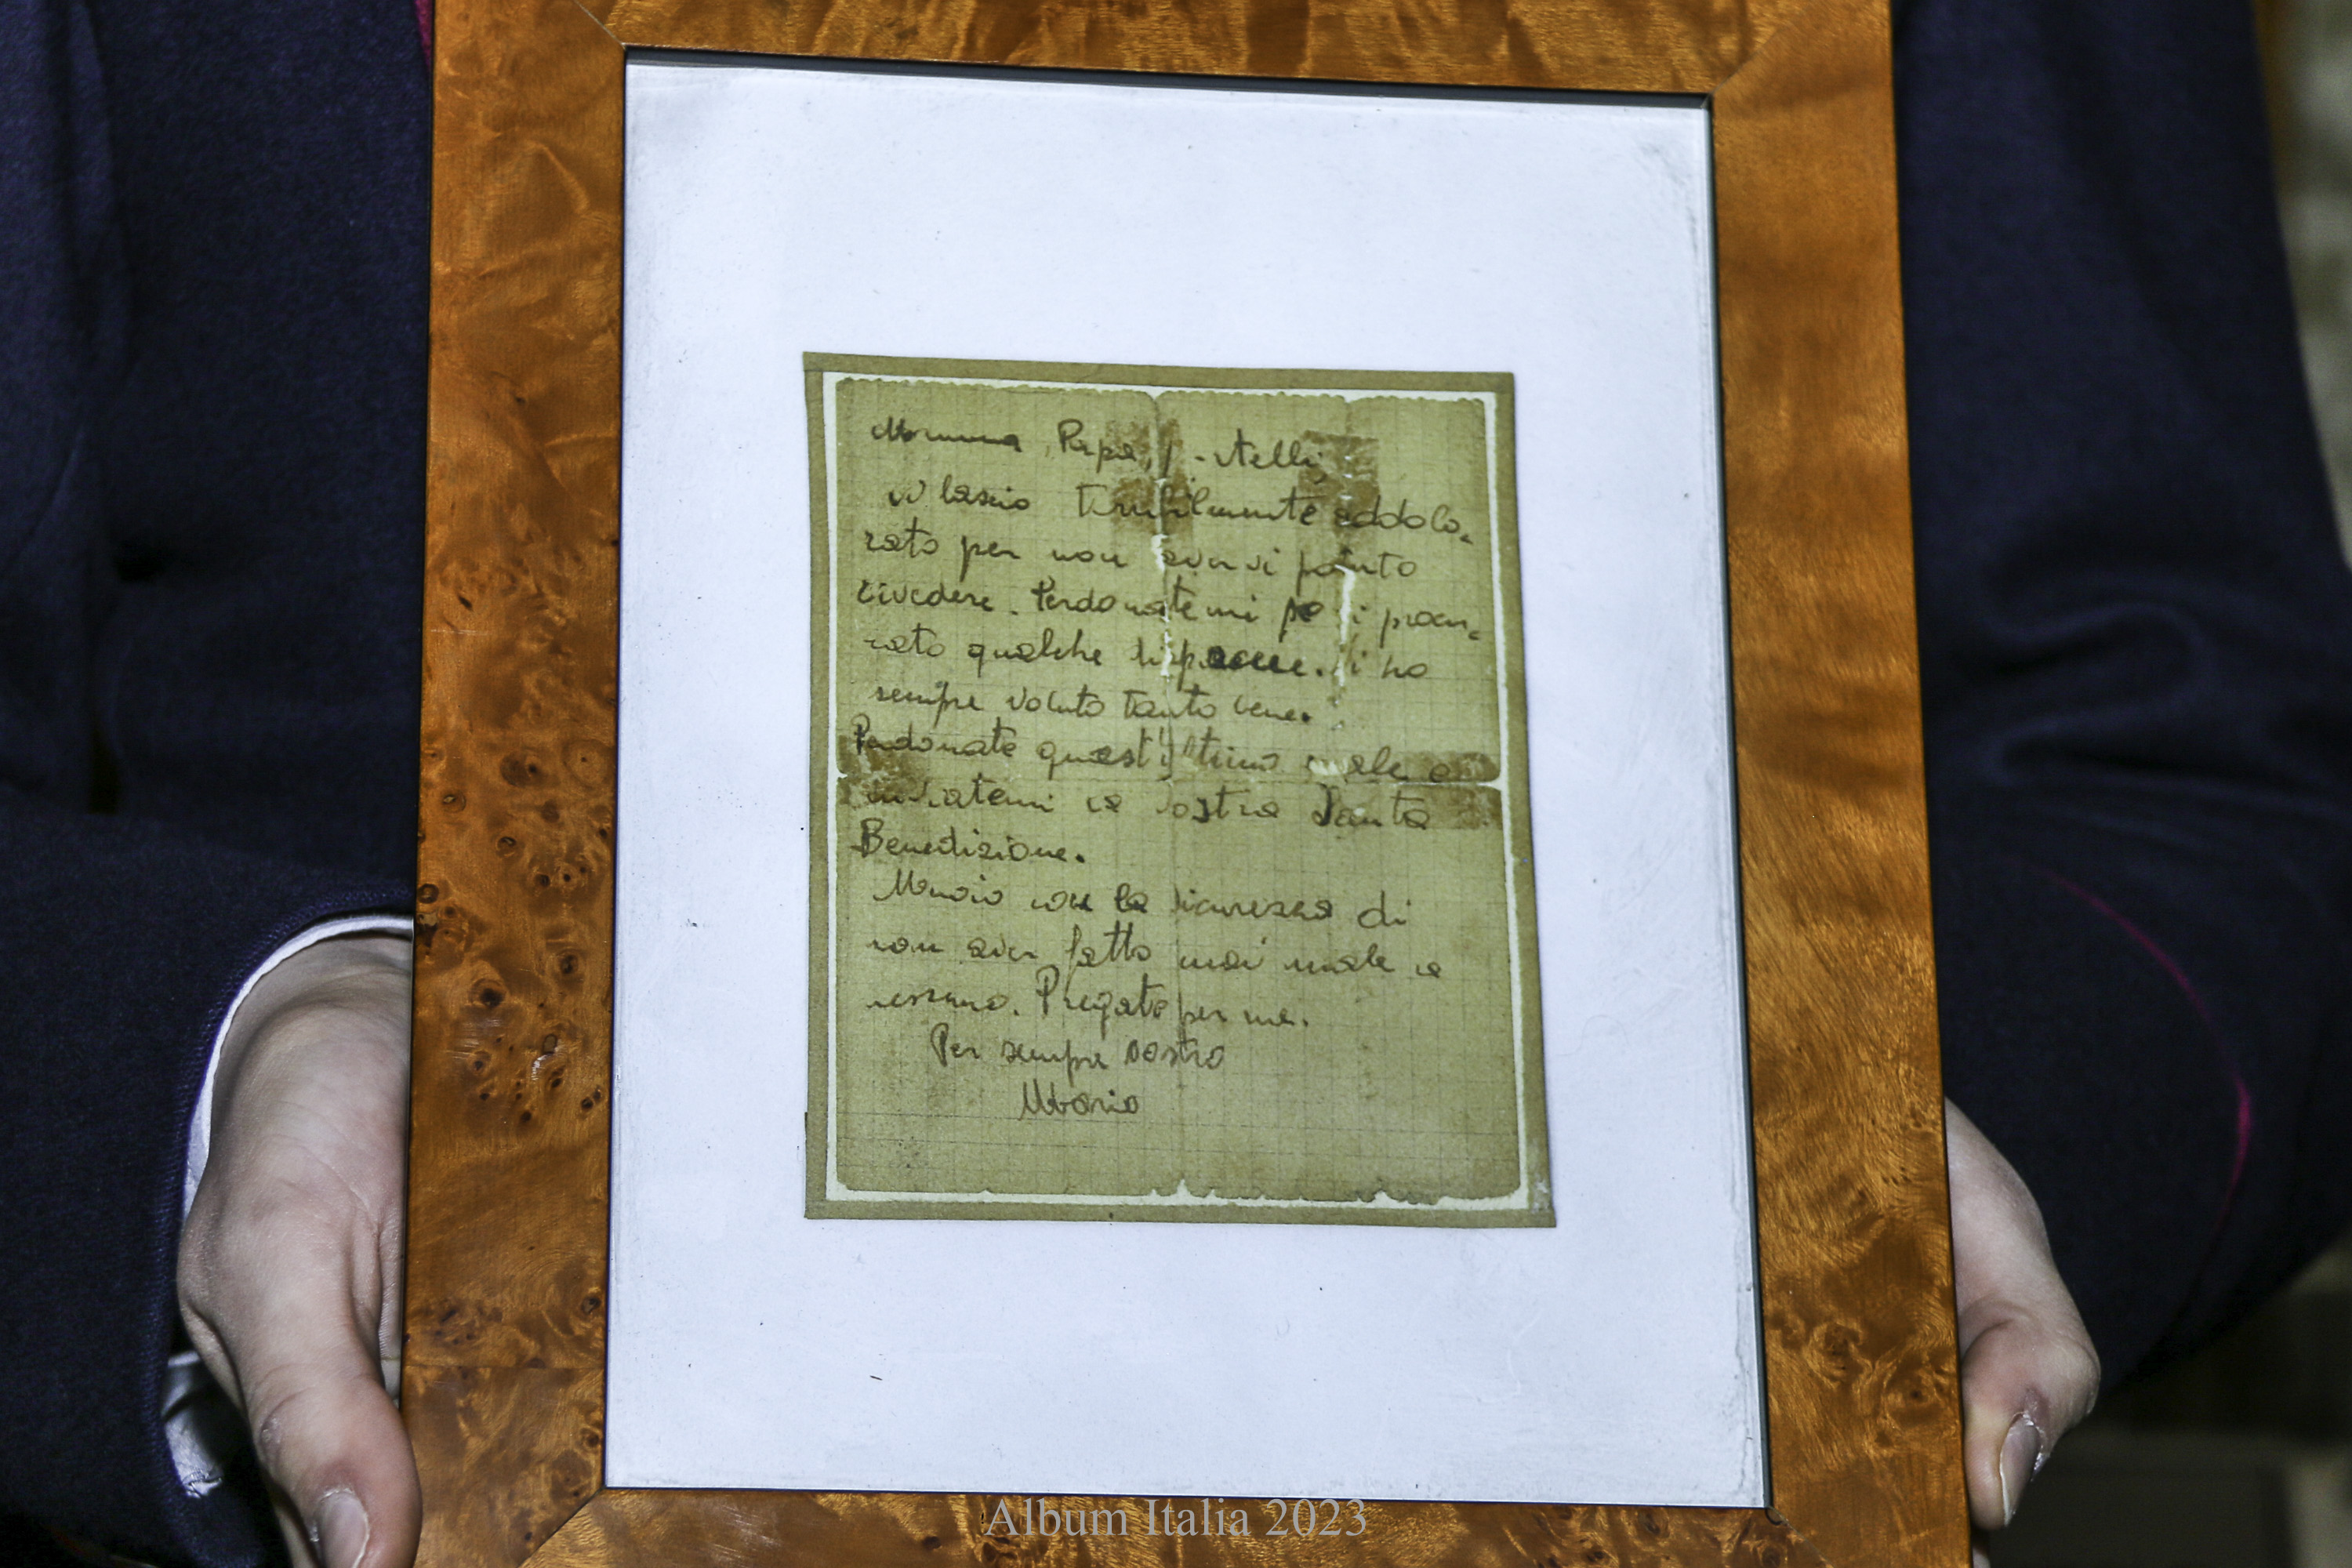 Mamma, Papà, f-atelli,
vi lascio terribilmente addolo-
rato per non avervi potuto
rivedere. Perdonatemi se vi procu-
rato qualche dispiacere. Vi ho
sempre voluto tanto bene.
Perdonate quest'ultimo male e
inviatemi la vostra Santa
Benedizione.
Muoio con la sicurezza di
non aver fatto mai male a
nessuno. Pregate per me.
Per sempre vostro
Album Italia 2023